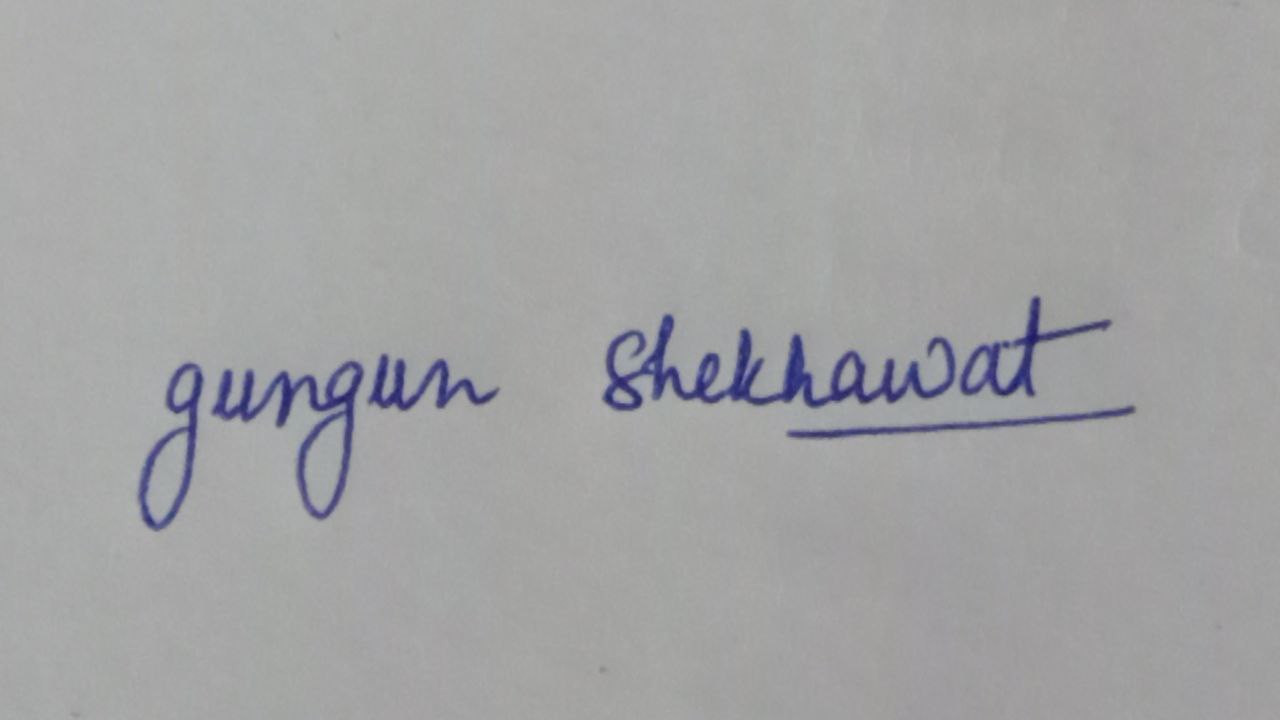 gungun Shekhawat